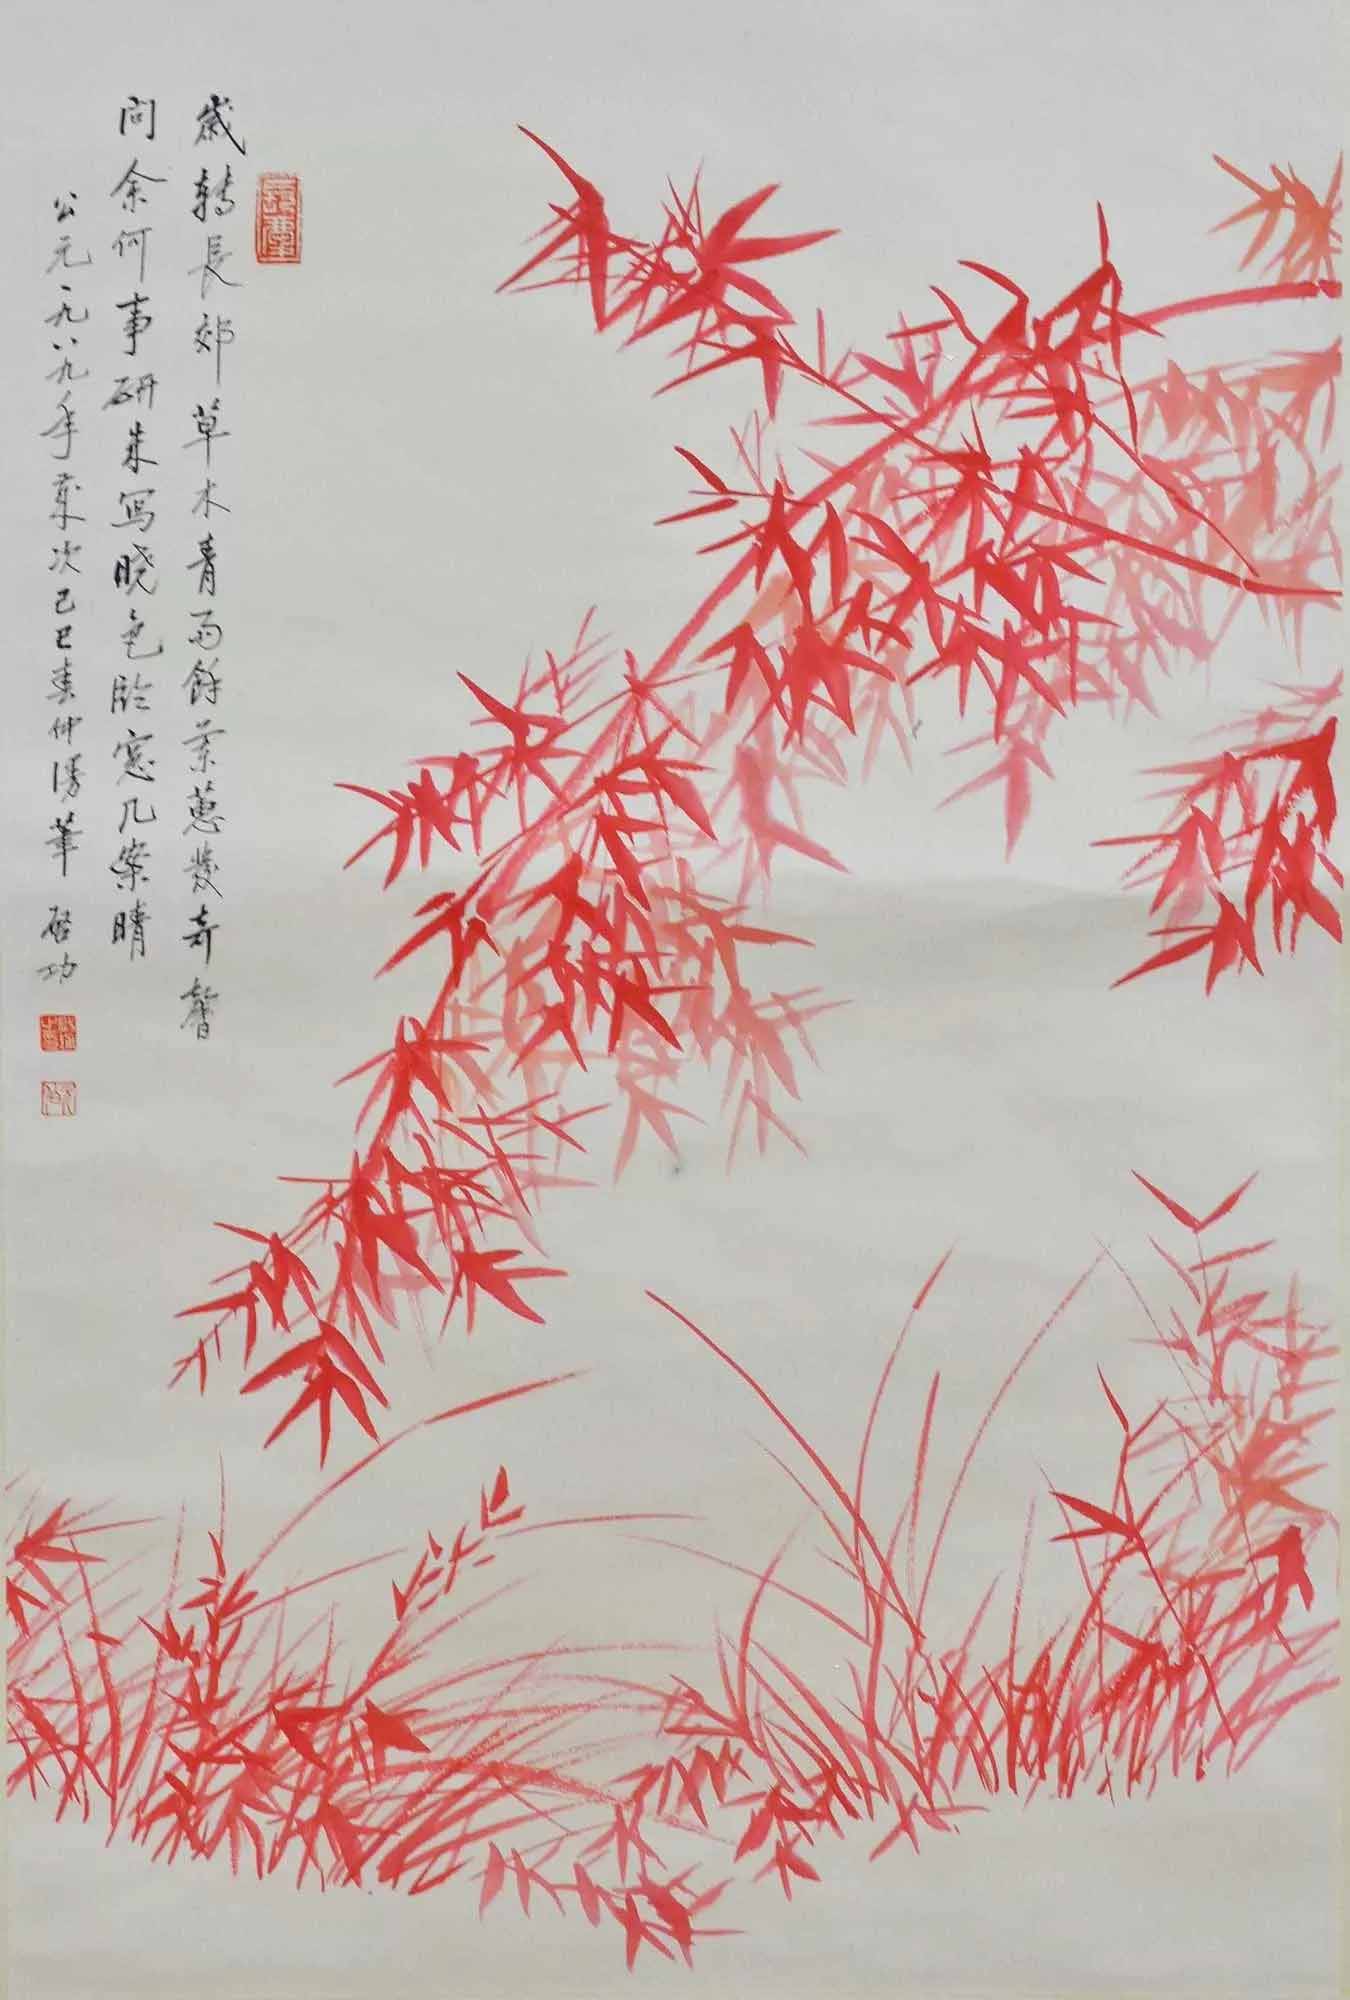 歲轉長郊草木青雨餘蘭蕙發奇馨
问余何事研朱写晓色臨窓几案晴
公元一九八九年歲次己巳春仲漫筆 啓功